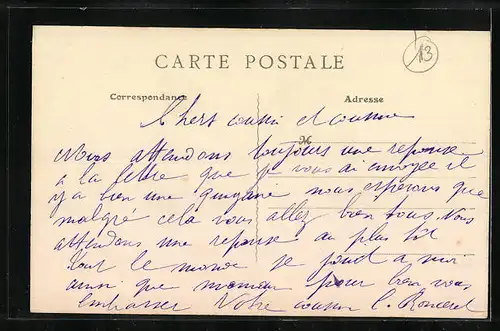 13
CARTE POSTALE
Correspondance
Adresse
Chers cousin et cousine
Nous attendons toujours une reponse
a la lettre que je vous ai envoyee il
y a bien une quinzaine nous esperons que
malgré cela vous allez bien tous. Vous
attendons une reponse au plus tot
tout le monde se joint a moi
ainsi que maman pour bien vous
embrasser Votre cousin E.